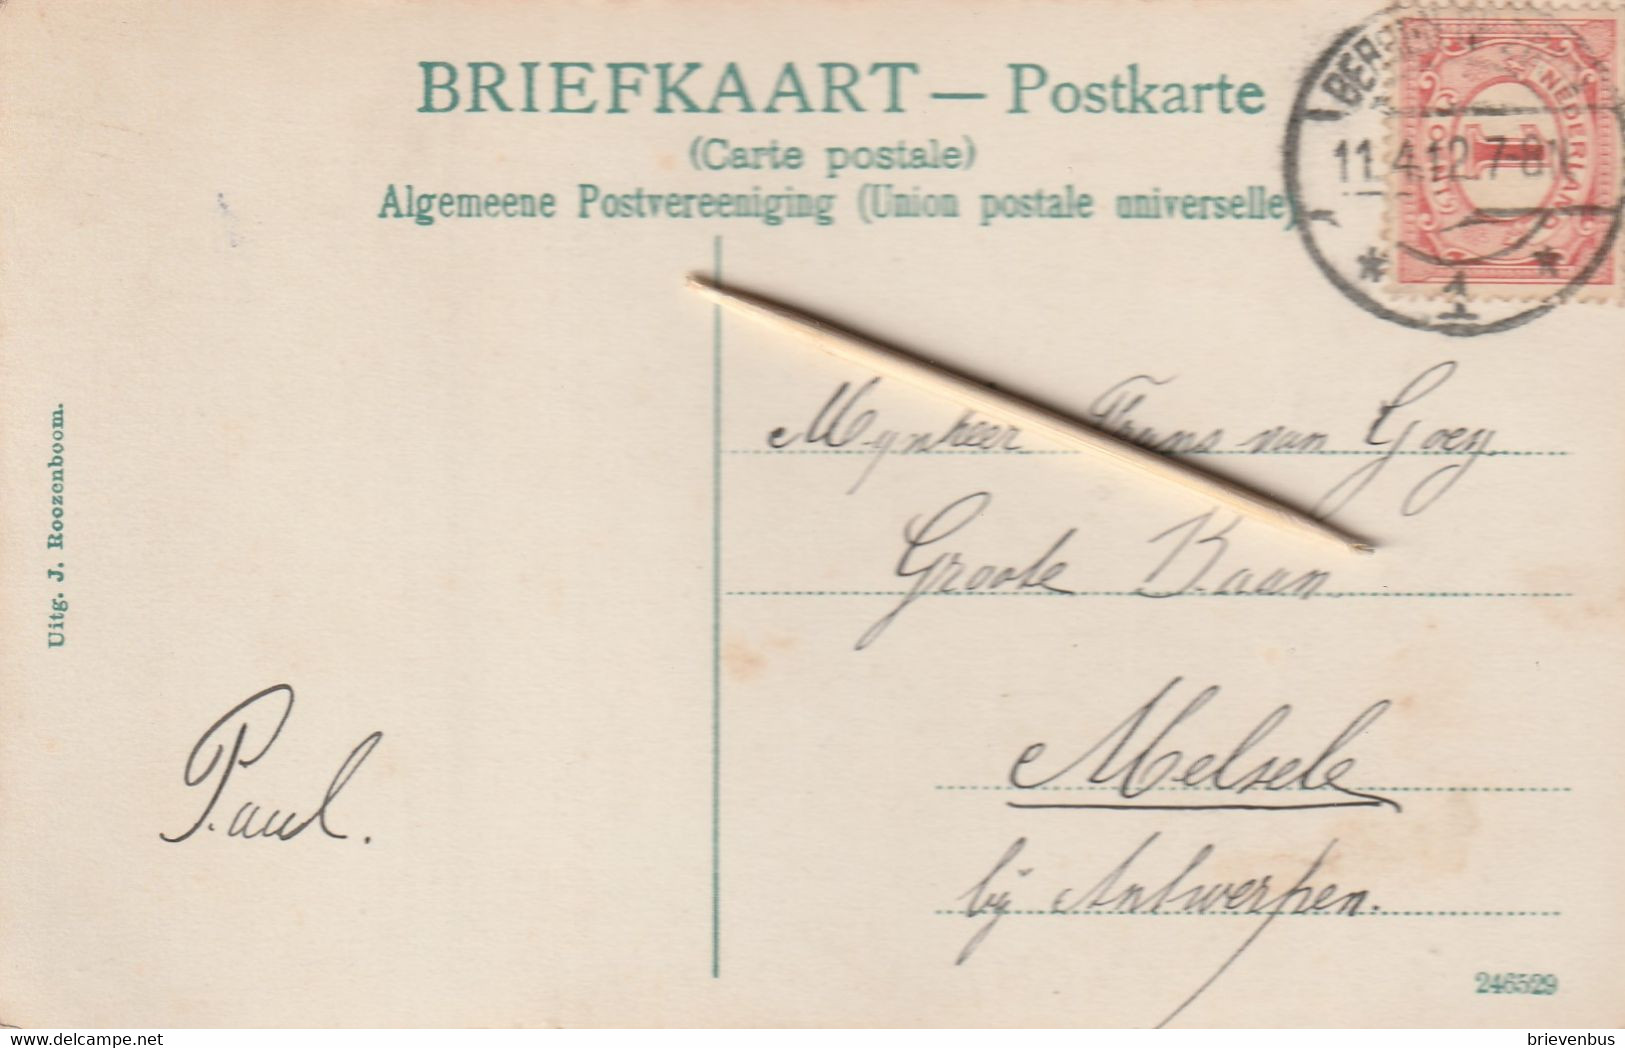 BRIEFKAART — Postkarte
(Carte postale)
Algemeene Postvereeniging (Union postale universelle)
11.4.12.7-8
1
NEDERLAND
1
Uitg. J. Roozenboom.
Mynheer Frans van Goey.
Groote Baan.
Melsele
bij Antwerpen.
Paul.
246529
www.delcampe.net
brievenbus